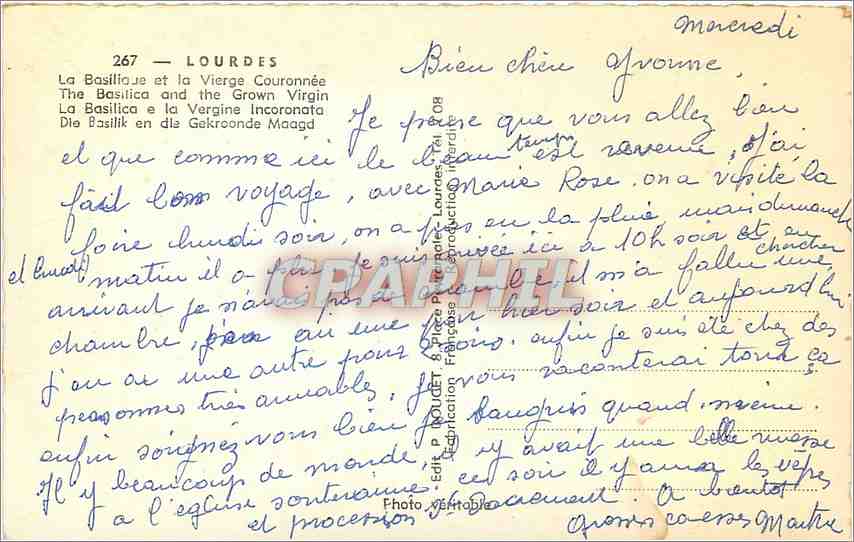 Mercredi
267 — LOURDES
Bien chère Yvonne,
La Basilique et la Vierge Couronnée
The Basilica and the Grown Virgin
La Basilica e la Vergine Incoronata
Die Basilik en die Gekroonde Maagd
Je pense que vous allez bien
et que comme ici le beau temps est revenu, j'ai
fait bon voyage, avec Marie Rose. on a visité la
foire lundi soir, on a pas eu la pluie, mais dimanche
et lundi matin il a plu. Je suis arrivée ici a 10h soir et en
arrivant je n'avais pas de chambre, il m'a fallu chercher une
chambre, j'en ai une pour hier soir et aujourd'hui
j'en ai une autre pour 2 jours. enfin je suis été chez des
personnes très aimables, je vous raconterai tout ça
enfin soignez vous bien quand même.
Il y beaucoup de monde, il y avait une belle messe
a l'eglise souterraine. ce soir il y aura les vêpres
et procession St Sacrement. A bientôt
Grosses caresses
CPAPHIL
Edit. P. DOUCET, 8, Place Peyramale - Lourdes, Tél.
Fabrication Française - Reproduction interdite
Photo véritable